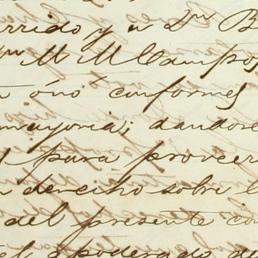 rrido y a Dn B
M. M. Campos
ó nó conformes
mayoria; dandose
para proveer
derecho sobre l
del presente con
el apoderado de